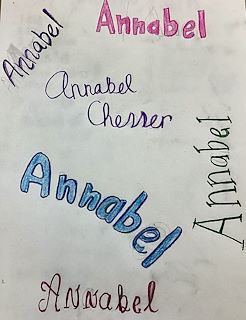 Annabel
Annabel
Annabel
Chesser
Annabel
Annabel
Annabel